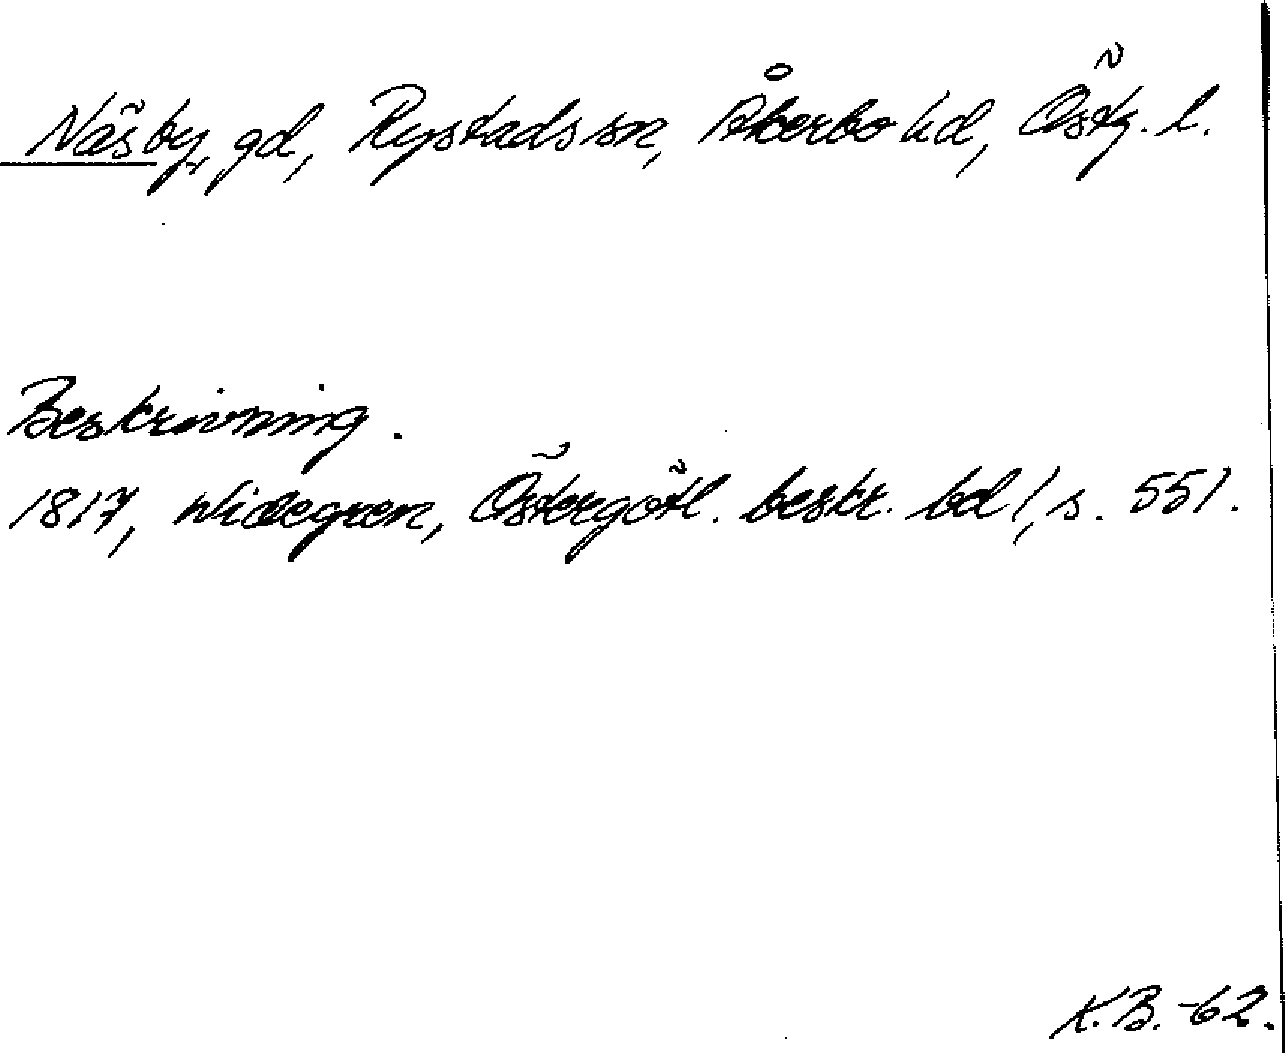 Näsby, gd, Rystads sn, Åkerbo hd, Östg. l.
Beskrivning.
1817, Widegren, Östergötl. beskr. bd 1, s. 551.
K.B. -62.